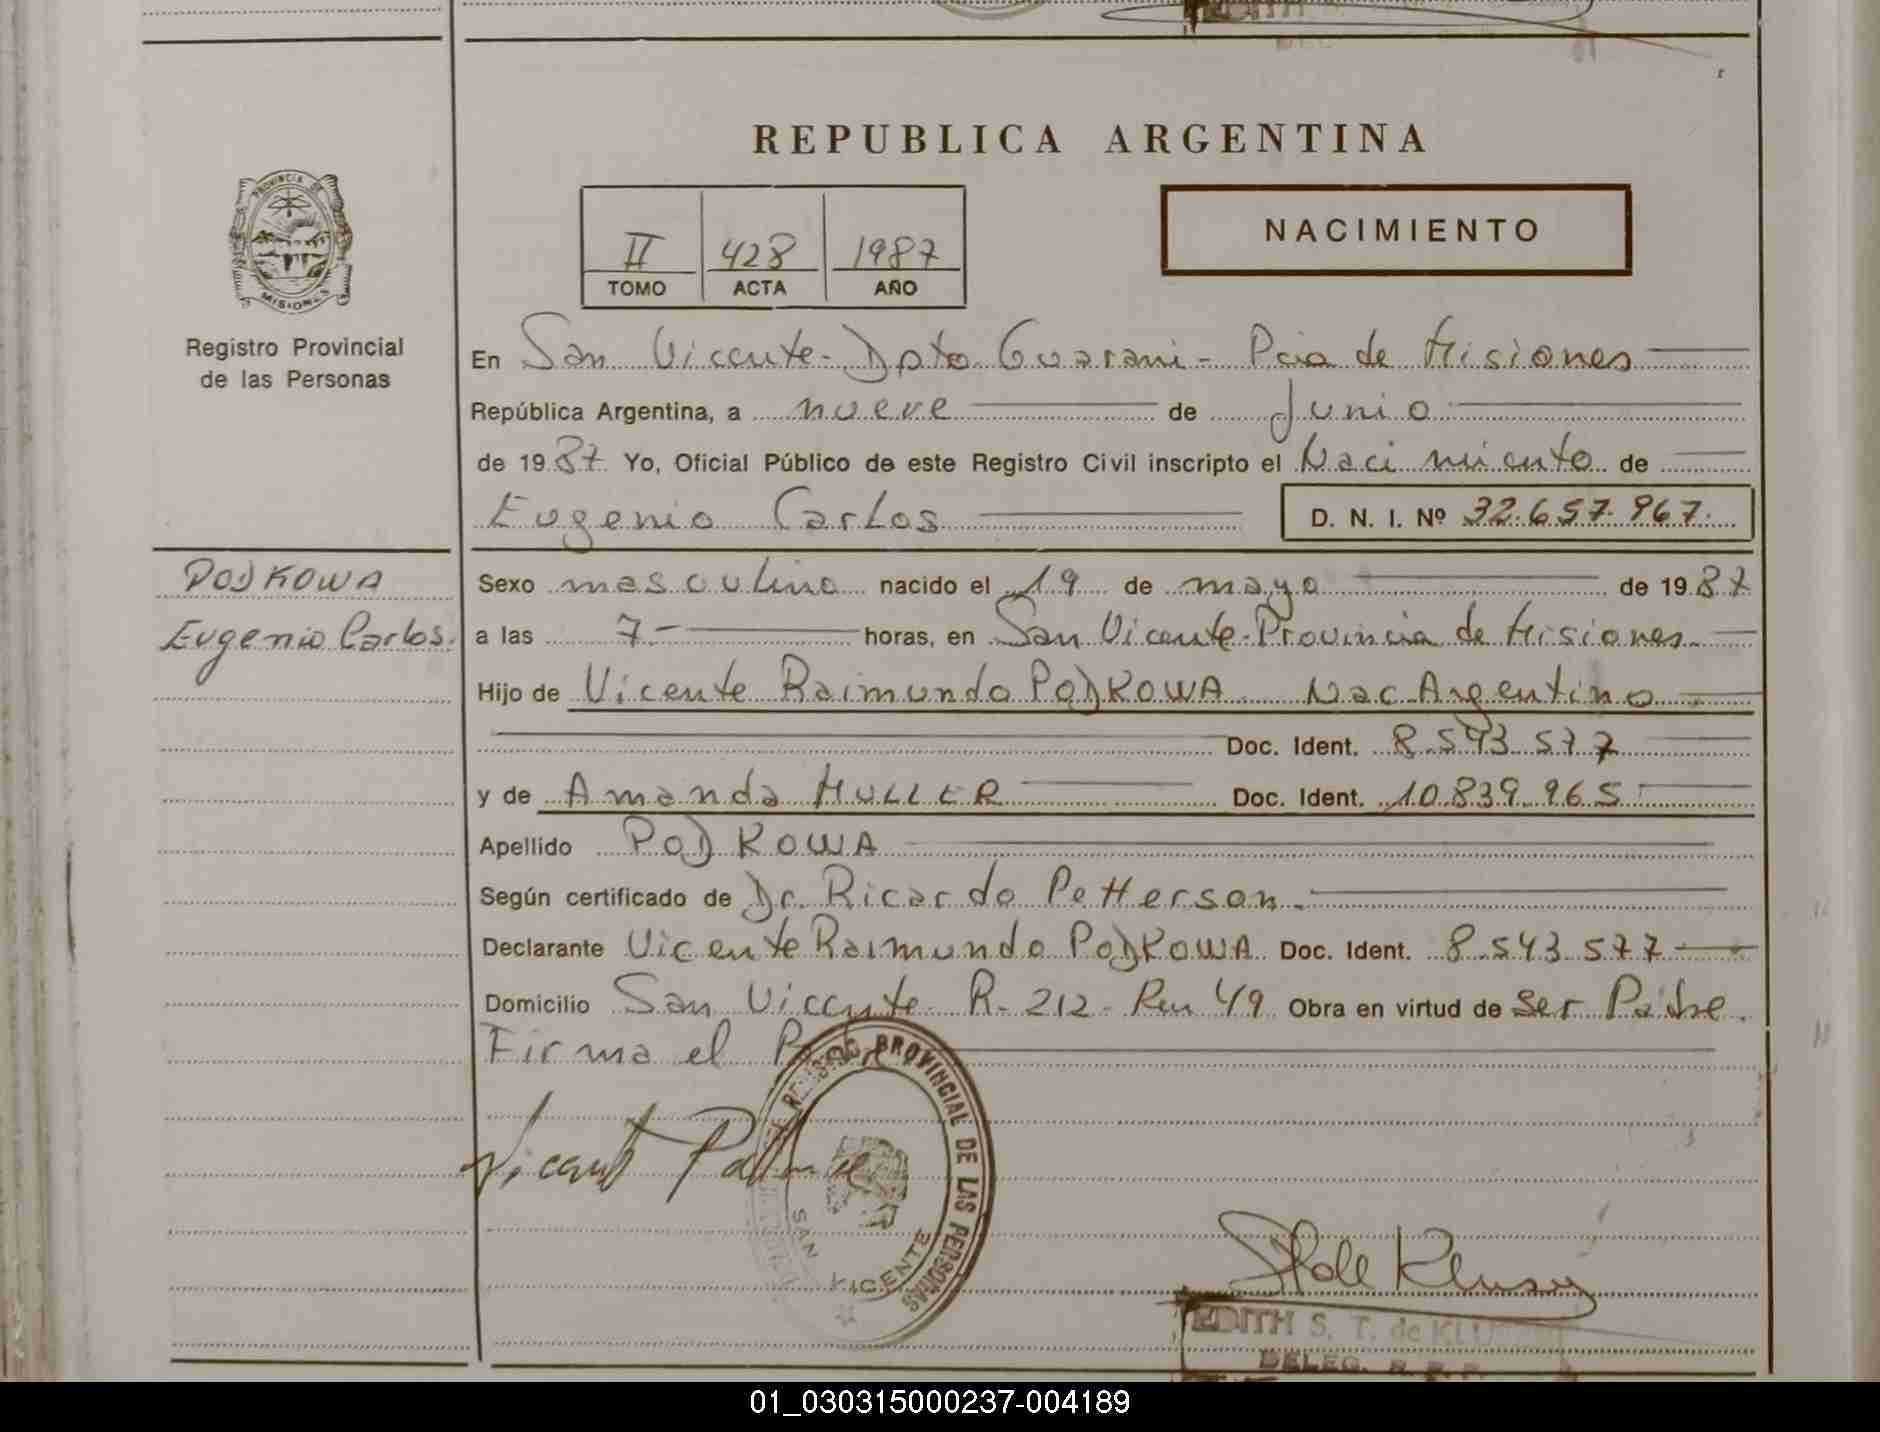 REPUBLICA ARGENTINA
PROVINCIA DE
MISIONES
Registro Provincial
de las Personas
II 428 1987
TOMO ACTA AÑO
NACIMIENTO
En San Vicente - Dpto Guarani - Pcia de Misiones
República Argentina, a nueve de Junio
de 1987 Yo, Oficial Público de este Registro Civil inscripto el Nacimiento de
Eugenio Carlos D. N. I. Nº 32.657.967.
PODKOWA
Eugenio Carlos.
Sexo masculino nacido el 19 de mayo de 1987
a las 7 - horas, en San Vicente - Provincia de Misiones
Hijo de Vicente Raimundo PODKOWA Nac Argentino
Doc. Ident. 8.543.577
y de Amanda MULLER Doc. Ident. 10.839.965
Apellido PODKOWA
Según certificado de Dr. Ricardo Petterson.
Declarante Vicente Raimundo PODKOWA Doc. Ident. 8.543.577
Domicilio San Vicente - R - 212 - Km 49 Obra en virtud de ser Padre.
Firma el
REGISTRO PROVINCIAL DE LAS PERSONAS
SAN VICENTE
EDITH S. T. de
DELEG. R. P. P.
01_030315000237-004189